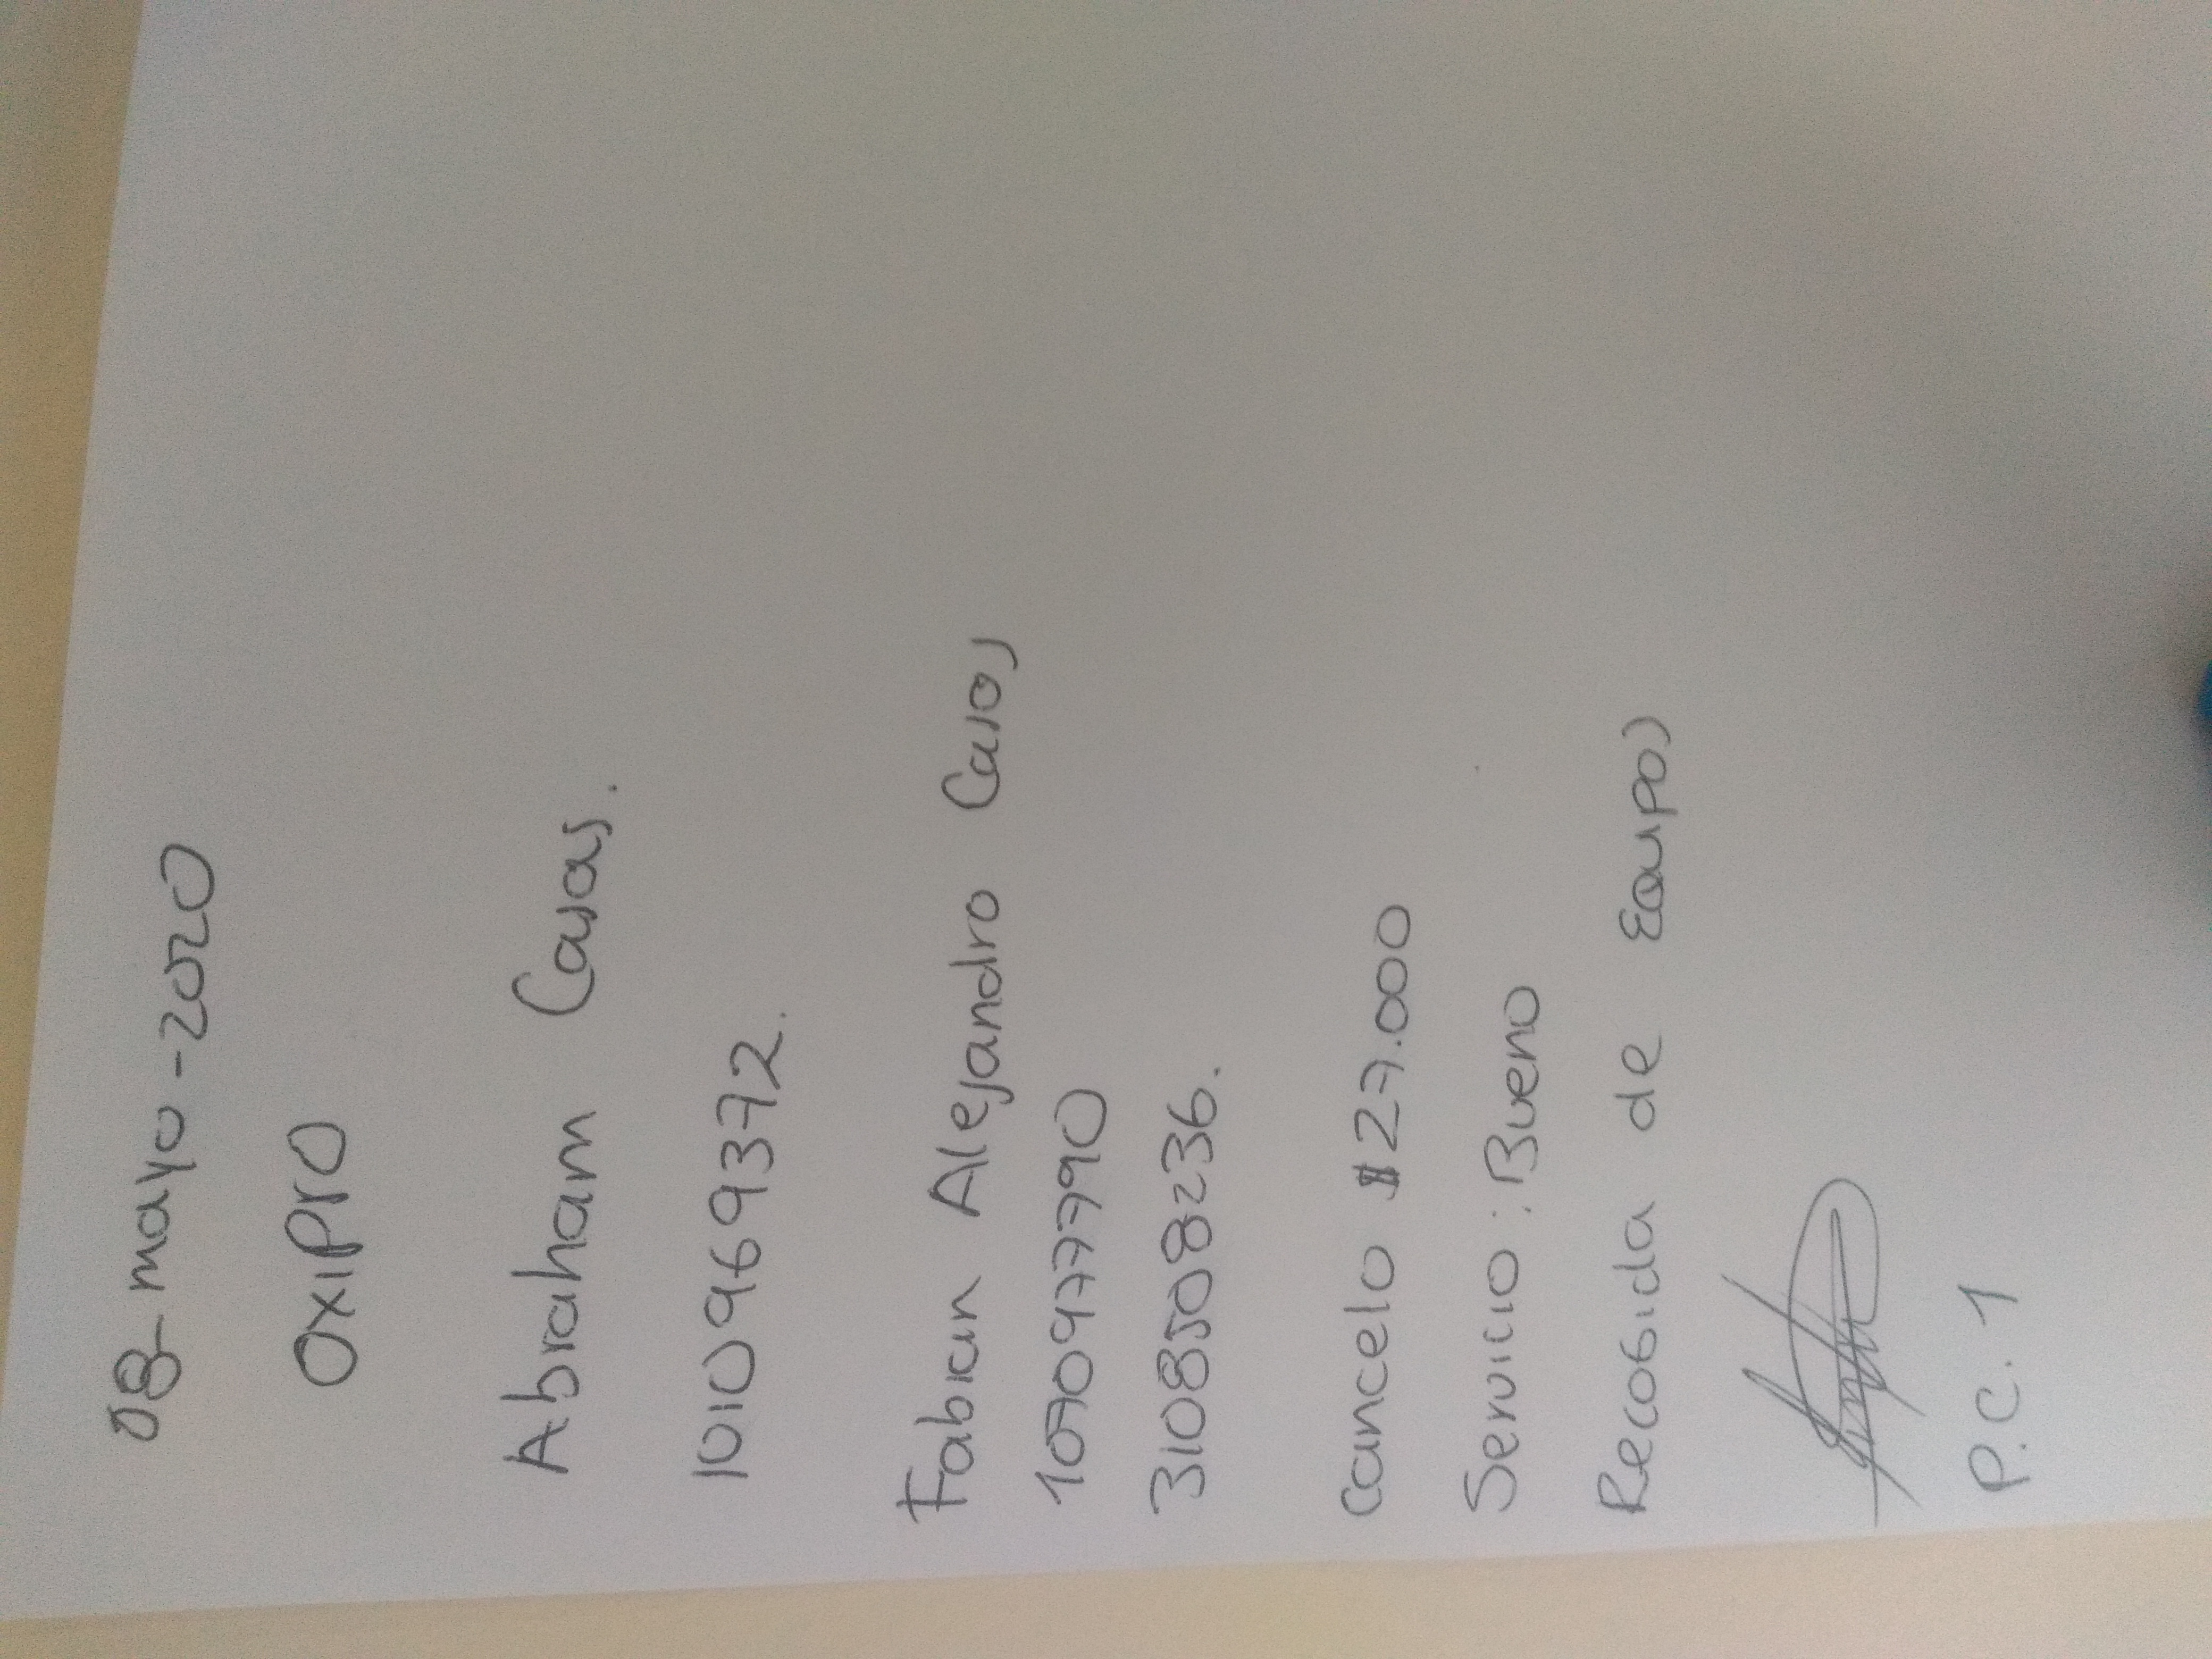 08-mayo-2020
OXIPrO
Abraham Casas.
1010969372.
Fabian Alejandro Casas
1070977790
3108508236.
Cancelo $27.000
Servicio: Bueno
Recogida de Equipos
P.C. 1